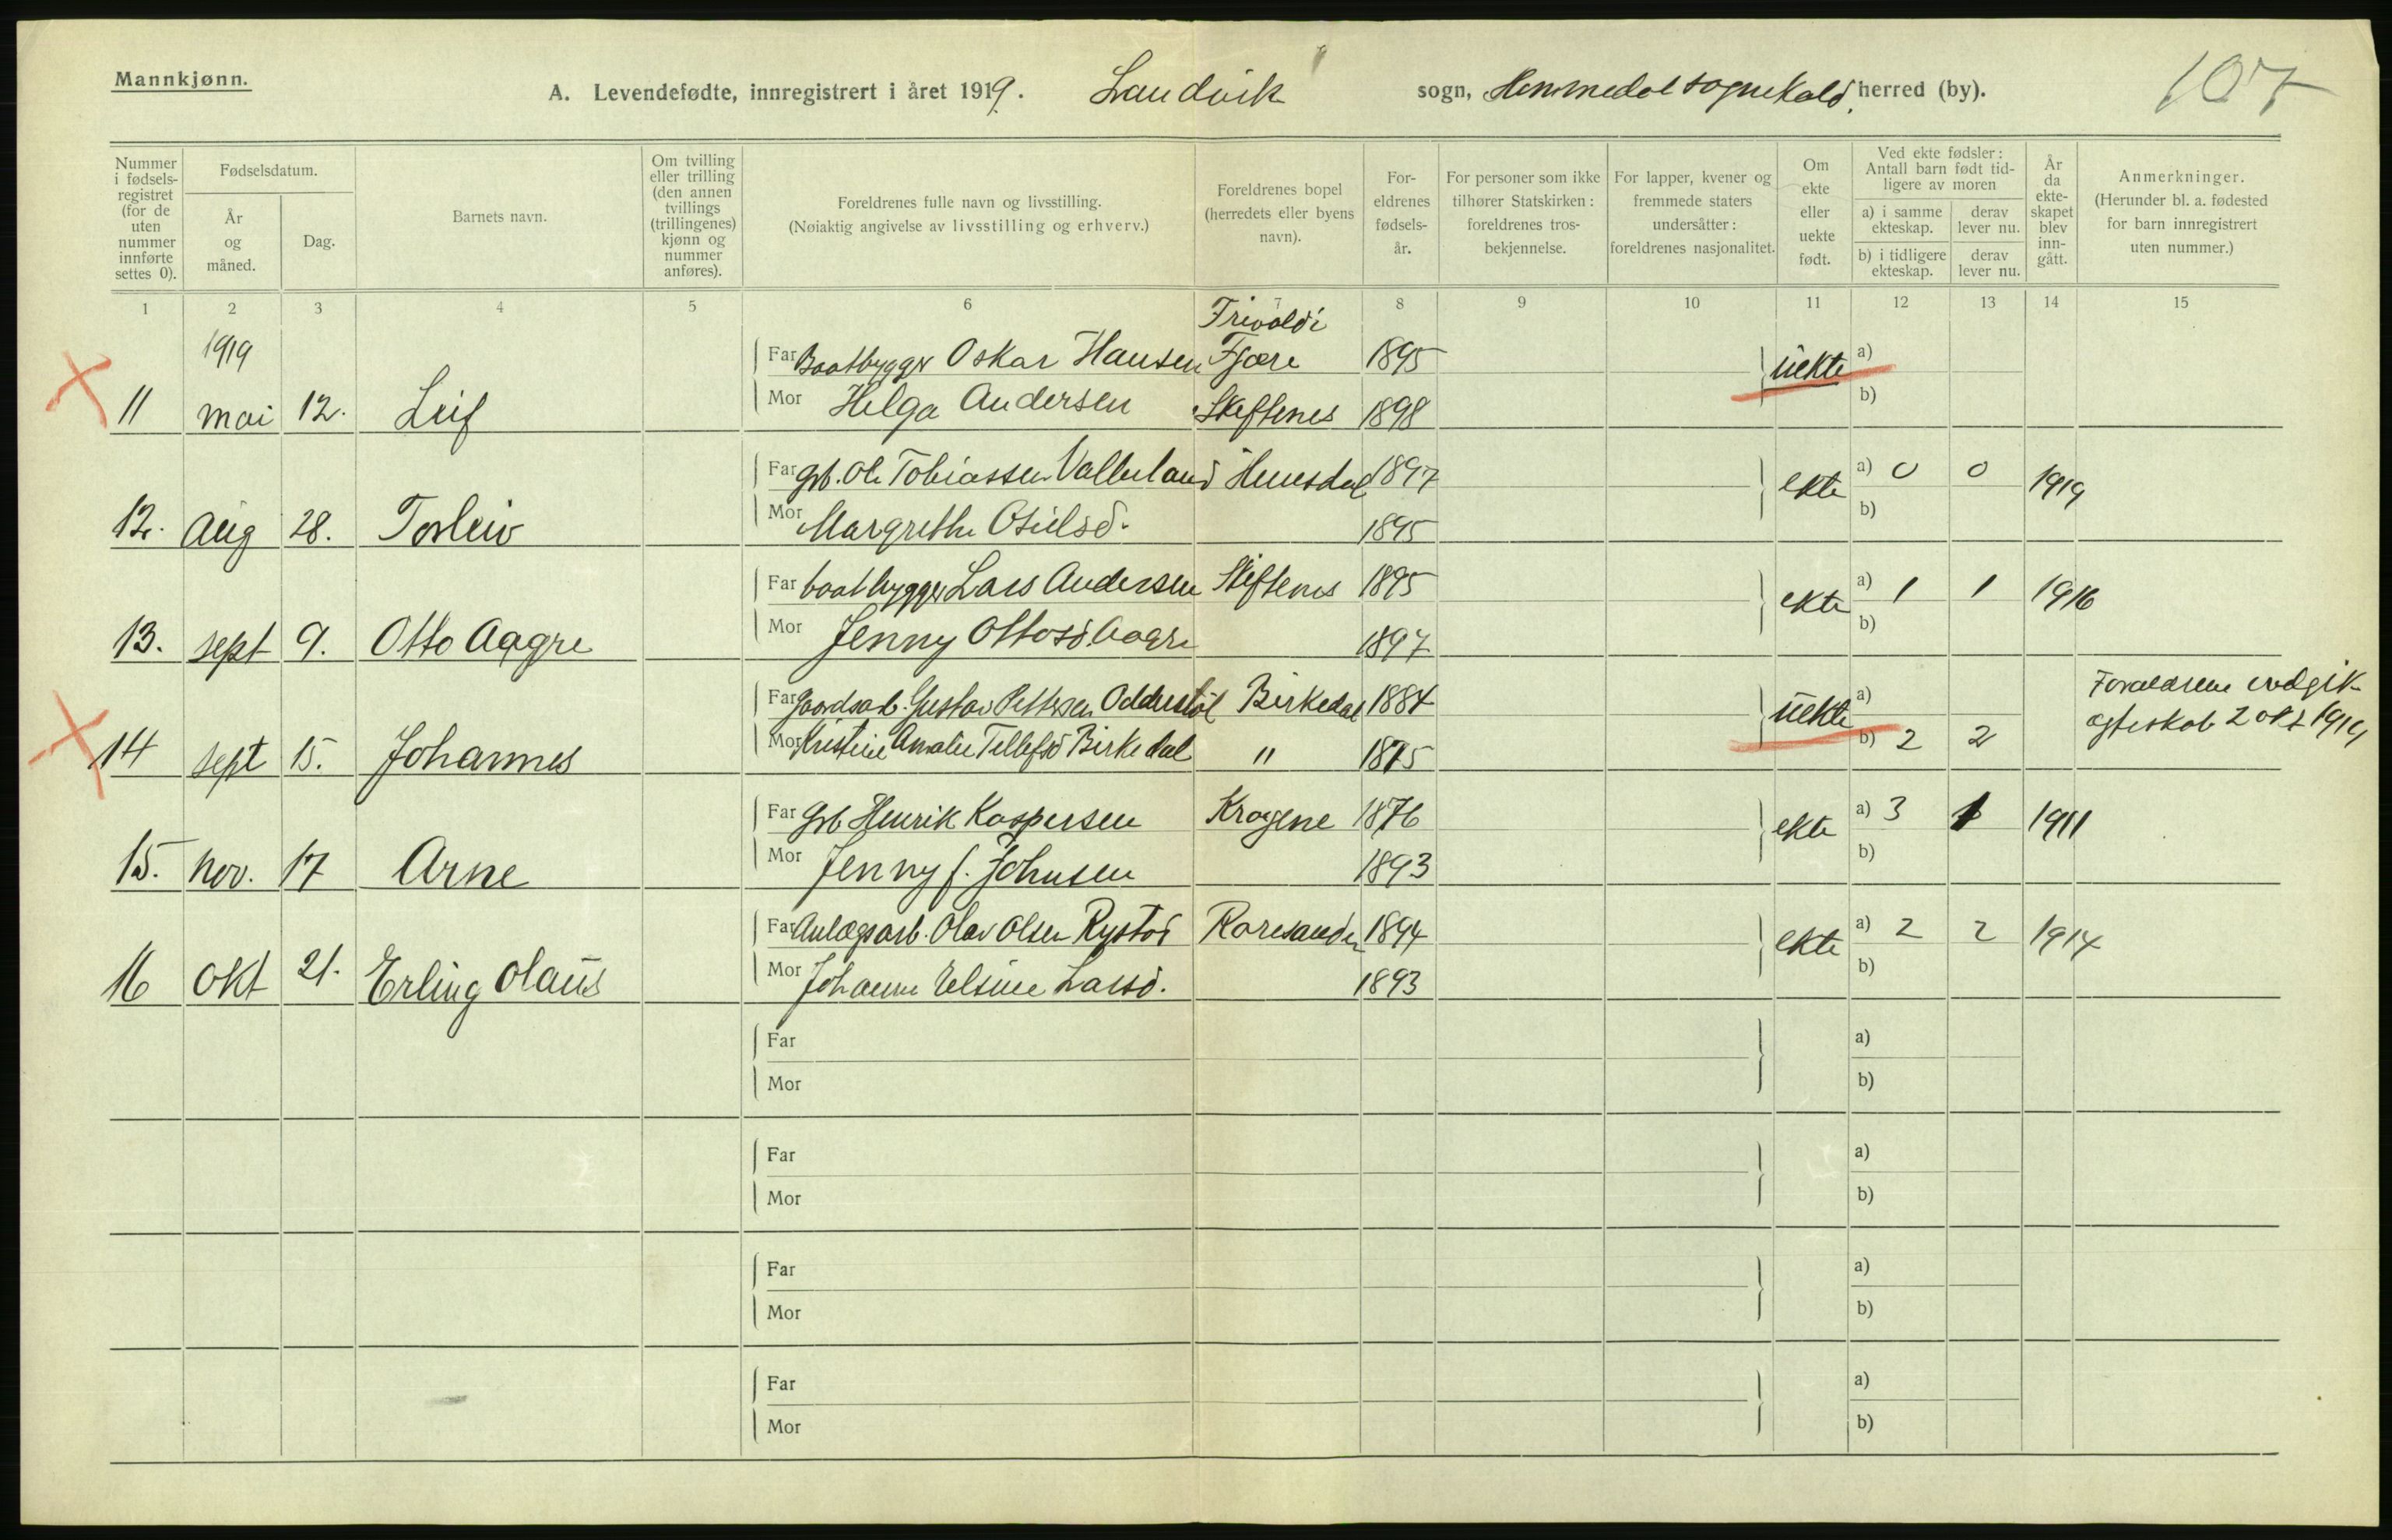 Mannkjønn.
A. Levendefødte, innregistrert i året 1919. Landvik sogn, Hommedal sognekald. herred (by).
107
Nummer i fødsels-registret (for de uten nummer innførte settes 0).
Fødselsdatum.
År og måned.
Dag.
Barnets navn.
Om tvilling eller trilling (den annen tvillings (trillingenes) kjønn og nummer anføres).
Foreldrenes fulle navn og livsstilling.
(Nøiaktig angivelse av livsstilling og erhverv.)
Foreldrenes bopel (herredets eller byens navn).
For-eldrenes fødsels-år.
For personer som ikke tilhører Statskirken: foreldrenes tros-bekjennelse.
For lapper, kvener og fremmede staters undersåtter: foreldrenes nasjonalitet.
Om ekte eller uekte født.
Ved ekte fødsler: Antall barn født tid-ligere av moren
a) i samme ekteskap.
derav lever nu.
b) i tidligere ekteskap.
derav lever nu.
År da ekte-skapet blev inn-gått.
Anmerkninger.
(Herunder bl. a. fødested for barn innregistrert uten nummer.)
1 2 3 4 5 6 7 8 9 10 11 12 13 14 15
Trivoldi
1919 Far Baatbygger Oskar Hansen Fjære 1895 uekte a)
11 mai 12. Leif Mor Helga Andersen Skiftenes 1898 b)
Far grb. Ole Tobiassen Valleland Hennesdal 1897 ekte a) 0 0 1919
12. Aug 28. Torleiv Mor Margrethe Osulsd. 1895 b)
Far baatbygger Lars Andersen Skiftenes 1895 ekte a) 1 1 1916
13. sept 9. Otto Aagre Mor Jenny Ottosd. Aagre 1897 b)
Far Gaardsarb. Gustav Pettersen Odderstøl Birkedal 1884 uekte a) Forældrene indgik
14 sept 15. Johannes Mor Kristine Amalie Tellefsd Birkedal " 1875 b) 2 2 egteskab 2 okt 1919
Far Grb Henrik Kaspersen Kragene 1876 ekte a) 3 1 1911
15. nov. 17 Arne Mor Jenny f. Johnsen 1893 b)
Far Anlægsarb. Olav Olsen Rystad Roresanden 1894 ekte a) 2 2 1914
16 okt 21. Erling Olaus Mor Johanne Elsine Larsd. 1893 b)
Far a)
Mor b)
Far a)
Mor b)
Far a)
Mor b)
Far a)
Mor b)